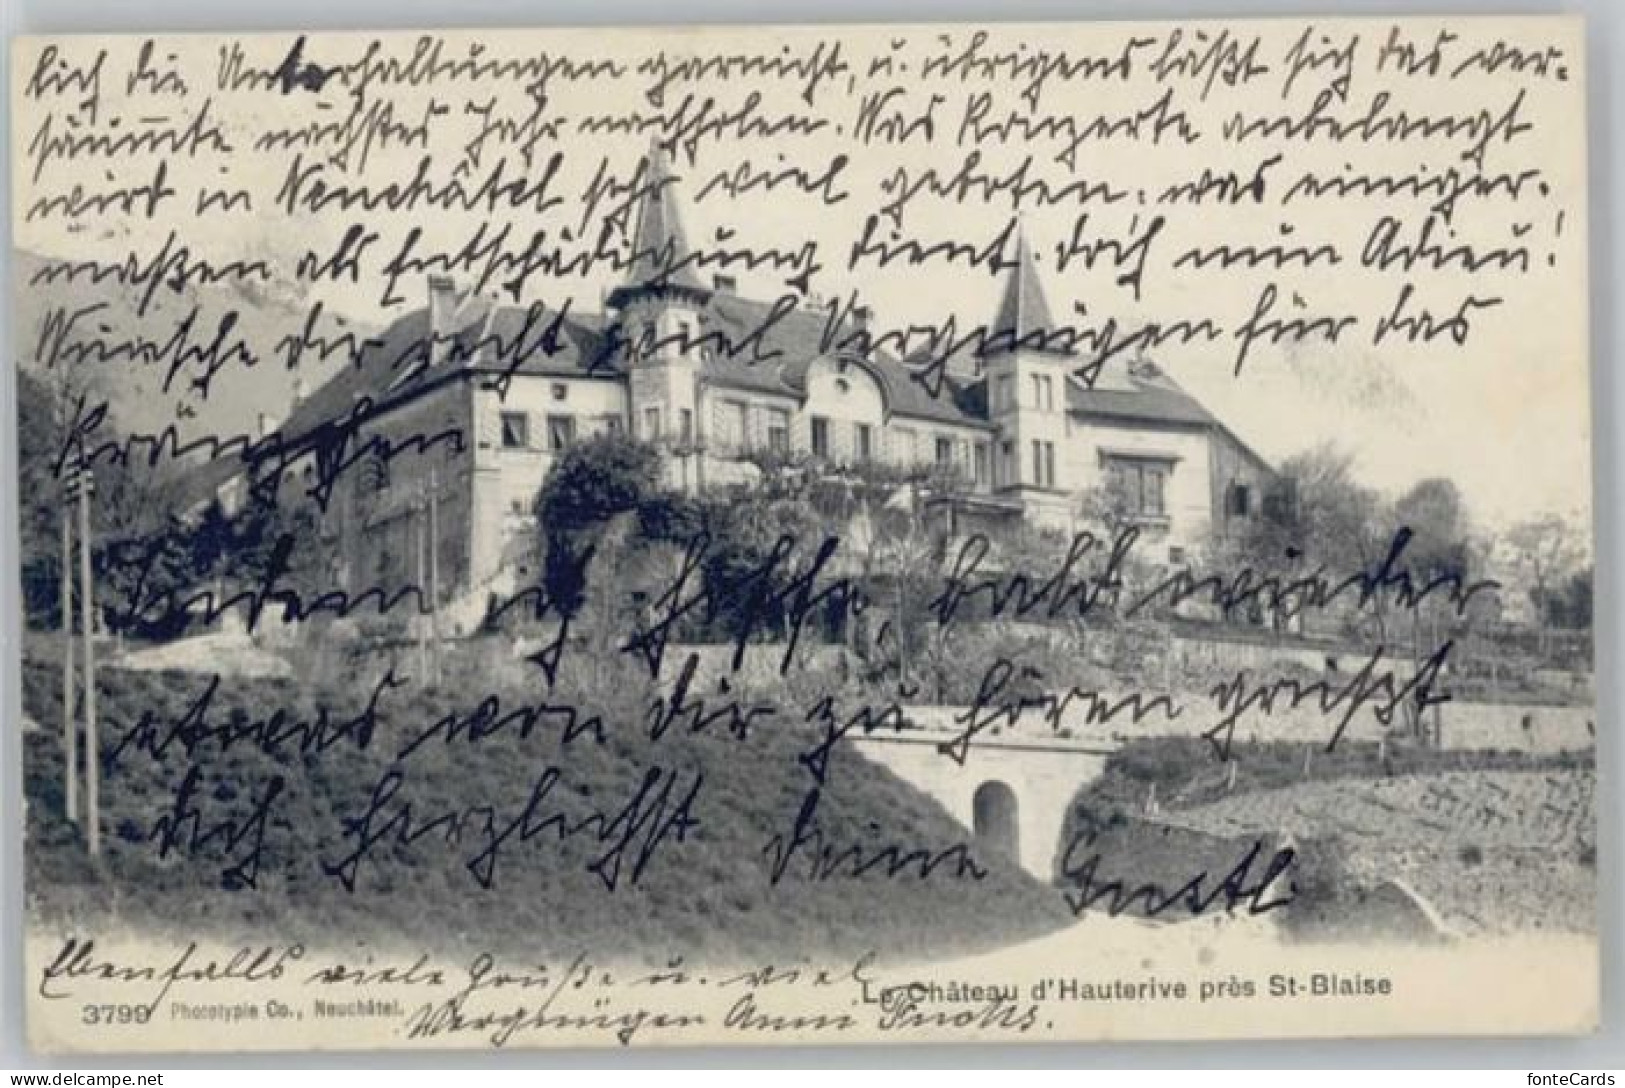 lich die Unterhaltungen garnicht, u. übrigens läßt sich das ver-
säumte nächstes Jahr nachholen. Was Konzerte anbelangt
wird in Neuchâtel sehr viel geboten, was einiger-
maßen als Entschädigung dient. doch nun Adieu!
Wünsche dir recht viel Vergnügen für das
Kränzchen
Indem ich hoffe, bald wieder
etwas von dir zu hören grüßt
dich herzlichst deine Gustl.
Ebenfalls viele Grüße u. viel
Vergnügen Anni
Le Château d'Hauterive près St-Blaise
3799 Phototypie Co., Neuchâtel.
fonteCards